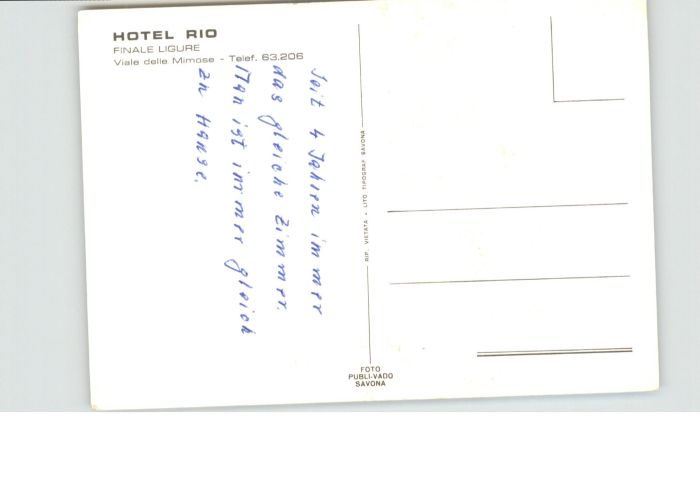 HOTEL RIO
FINALE LIGURE
Viale delle Mimose - Telef. 63.206
Seit 4 Jahren immer
das gleiche Zimmer.
Man ist immer gleich
zu Hause.
RIP. VIETATA - LITO TIPOGRAF SAVONA
FOTO
PUBLI-VADO
SAVONA